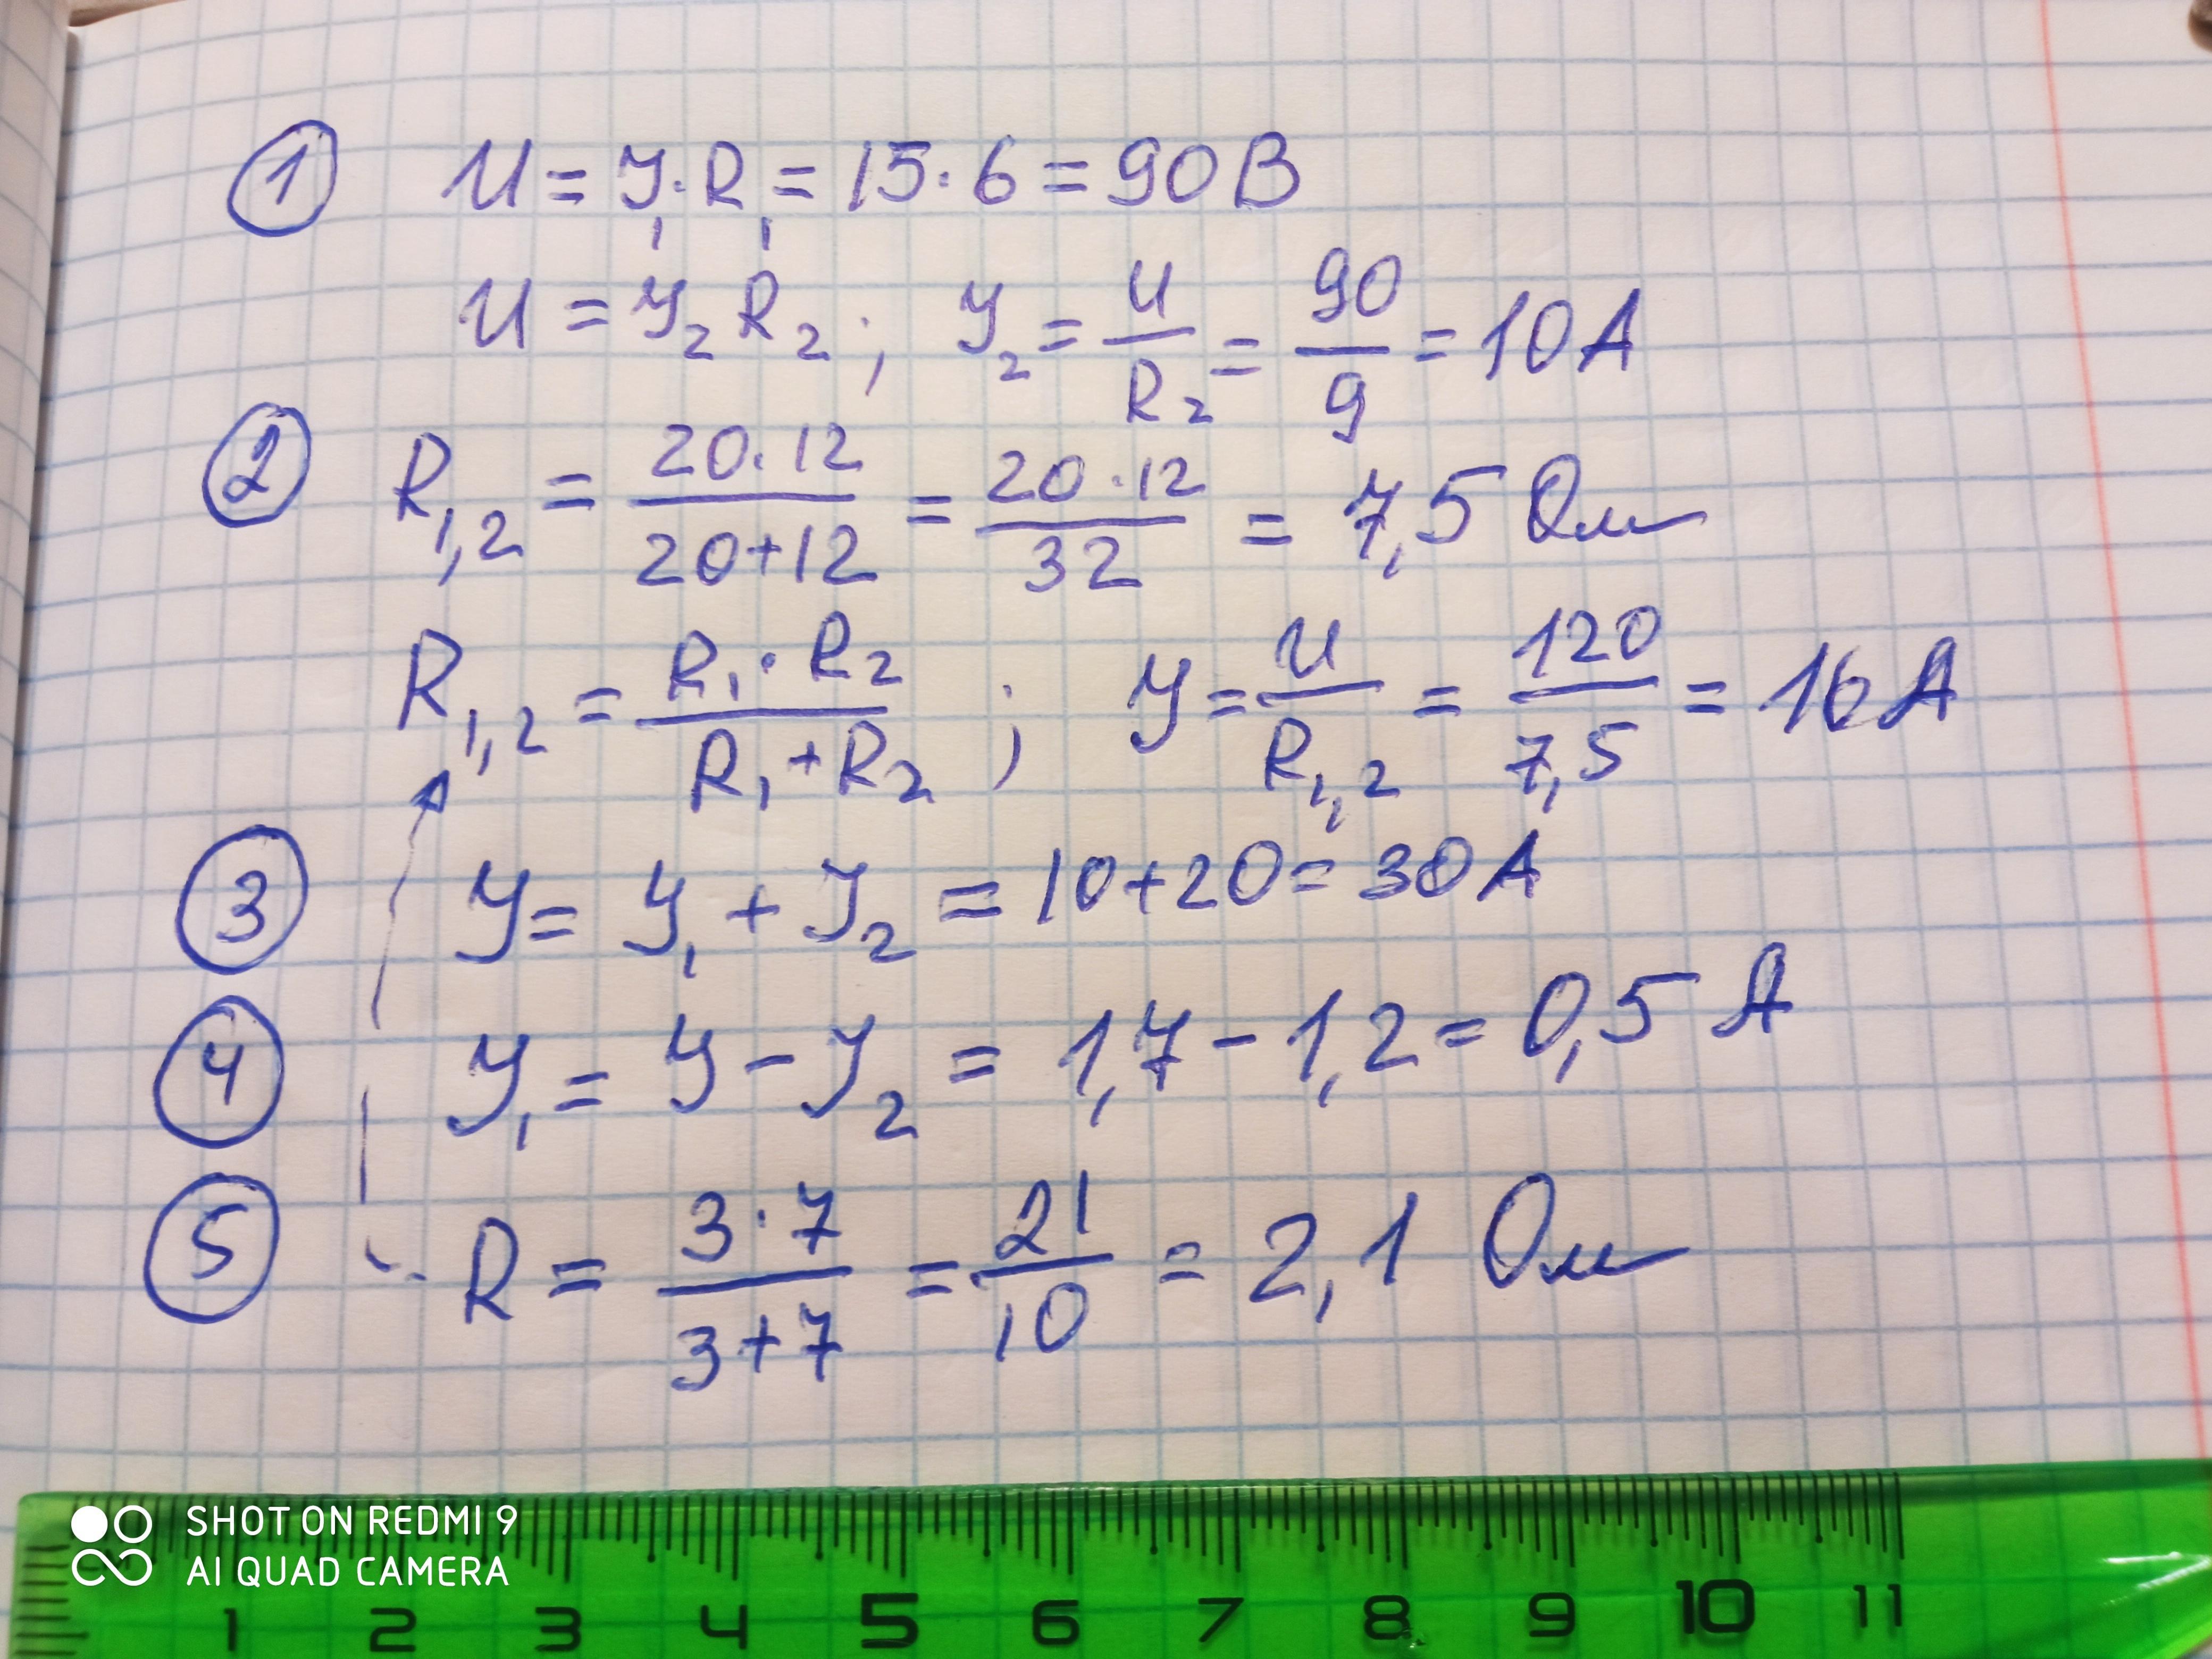 ① U = I₁·R₁ = 15·6 = 90 В
U = I₂R₂; I₂ = U/R₂ = 90/9 = 10 А
② R₁,₂ = 20·12/20+12 = 20·12/32 = 7,5 Ом
R₁,₂ = R₁·R₂/R₁+R₂; I = U/R₁,₂ = 120/7,5 = 16 А
③ I = I₁ + I₂ = 10+20 = 30 А
④ I₁ = I − I₂ = 1,7 − 1,2 = 0,5 А
⑤ R = 3·7/3+7 = 21/10 = 2,1 Ом
SHOT ON REDMI 9
AI QUAD CAMERA
1 2 3 4 5 6 7 8 9 10 11